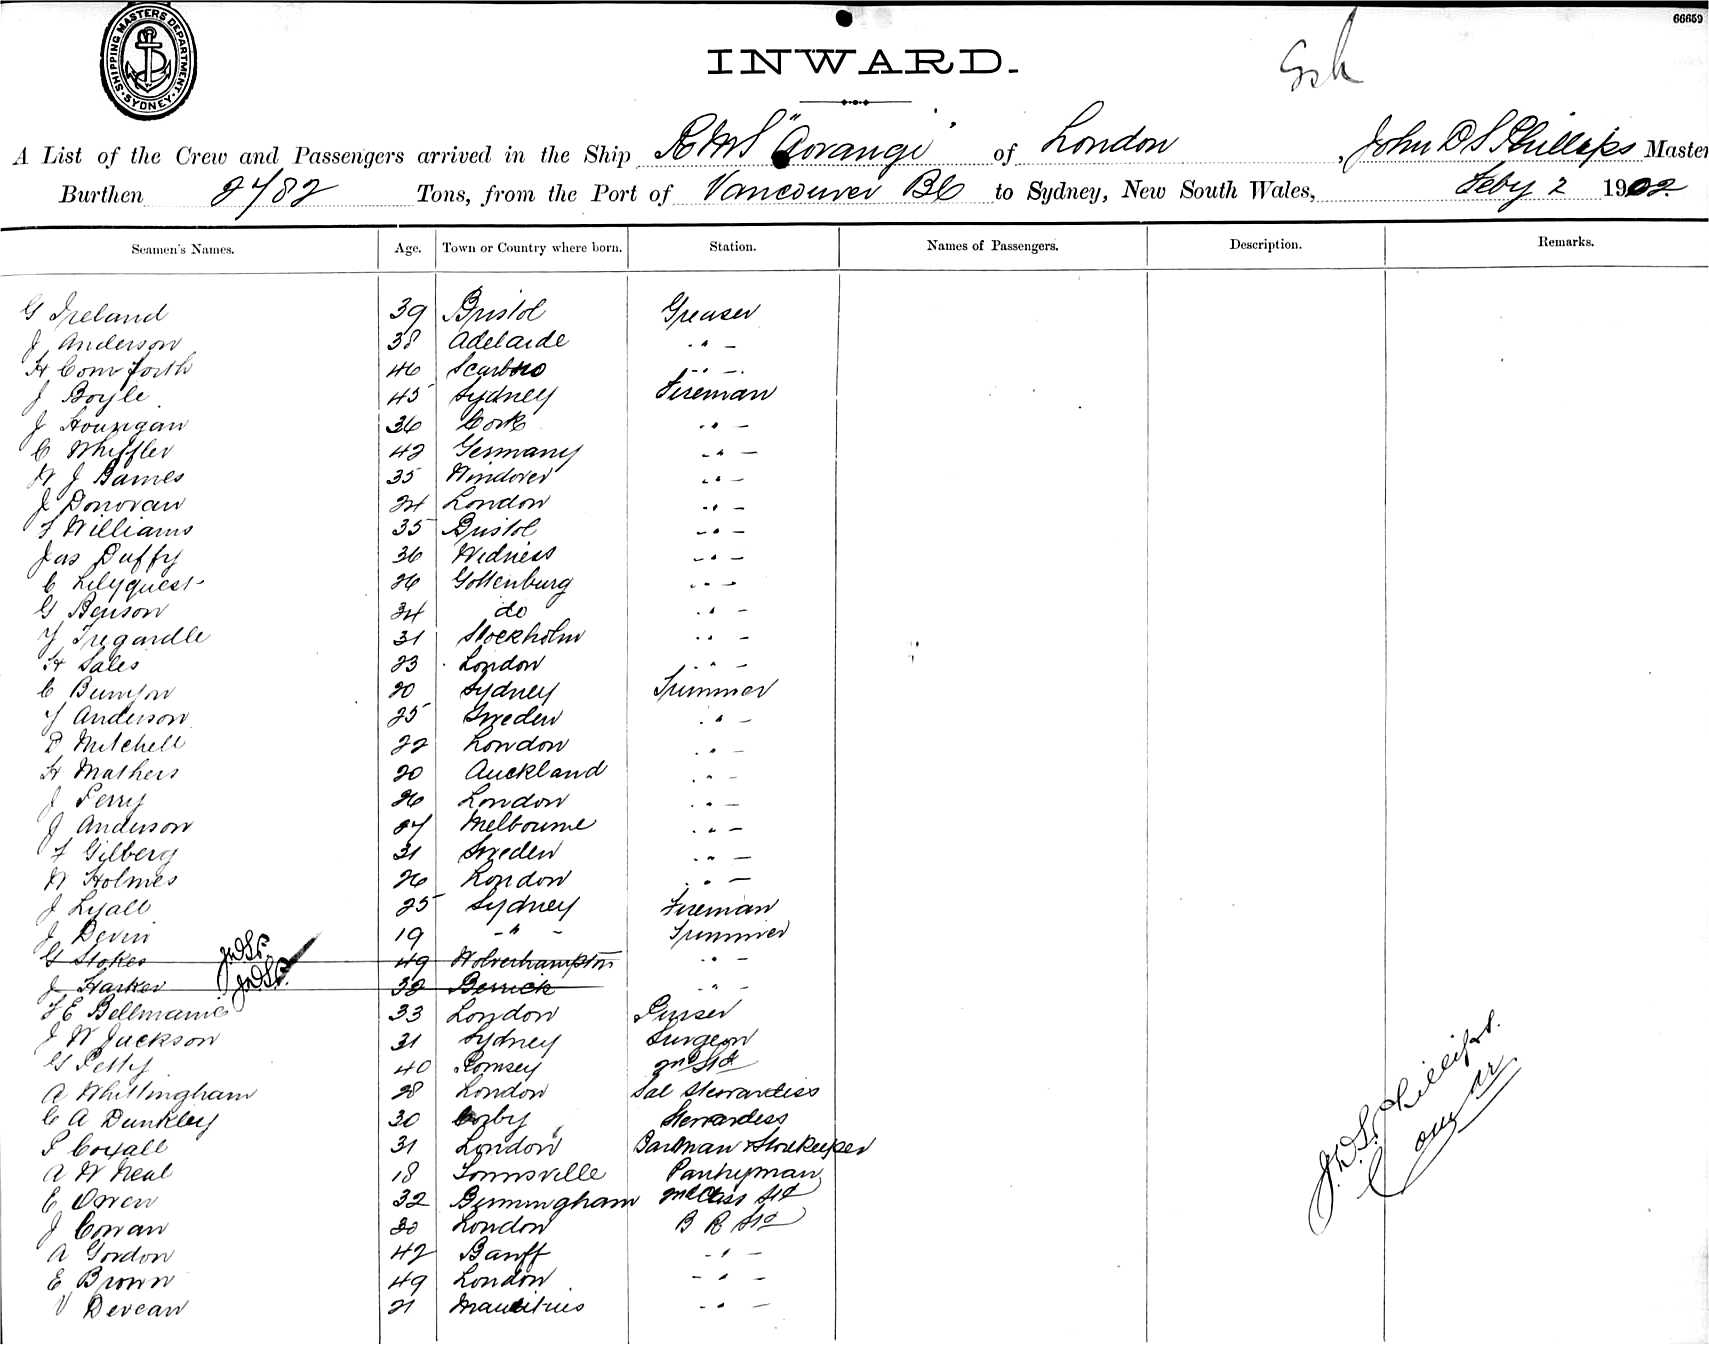 66659
SHIPPING MASTERS DEPARTMENT. SYDNEY.
INWARD.
A List of the Crew and Passengers arrived in the Ship RMS "Aorangi" of London, John D S Phillips Master
Burthen 2782 Tons, from the Port of Vancouver BC to Sydney, New South Wales, Feby 2 1902
Seamen's Names. Age. Town or Country where born. Station. Names of Passengers. Description. Remarks.
G Ireland 39 Bristol Greaser
J Anderson 38 Adelaide " -
H Cornforth 46 Scarbro " -
J Boyle 45 Sydney Fireman
J Hourigan 36 Cork " -
C Whiffler 42 Germany - " -
W J Barnes 35 Windover " -
J Donovan 24 London " -
F Williams 35 Bristol - " -
Jas Duffy 36 Widness - " -
C Lilyquest 26 Gottenburg " -
G Benson 34 do " -
Y Tregardle 31 Stockholm " -
H Sales 23 London " -
C Bunyon 20 Sydney Trimmer
Y Anderson 25 Sweden " -
D Mitchell 22 London " -
H Mathers 20 Auckland " -
J Perry 26 London " -
J Anderson 27 Melbourne " -
F Gilberg 31 Sweden " -
W Holmes 26 London " -
J Lyall 25 Sydney Fireman
J Devin 19 - " - Trimmer
G Stokes JDSP. 49 Wolverhampton " -
J Harker JDSP. 38 Berrick " -
F E Bellmaine 33 London Purser
J W Jackson 31 Sydney Surgeon
G Petty 40 Romsey Std
A Whittingham 28 London Sal Stewardess
C A Dunkley 30 Corby Stewardess
P Coxall 31 London Barman & Storekeeper
A W Neal 18 Townsville Pantryman
E Owen 32 Birmingham 2nd Class Std
J Cowan 30 London B R Std
A Gordon 42 Banff - " -
E Brown 49 London - " -
V Devean 21 Mauritius - " -
J.D.S. Phillips.